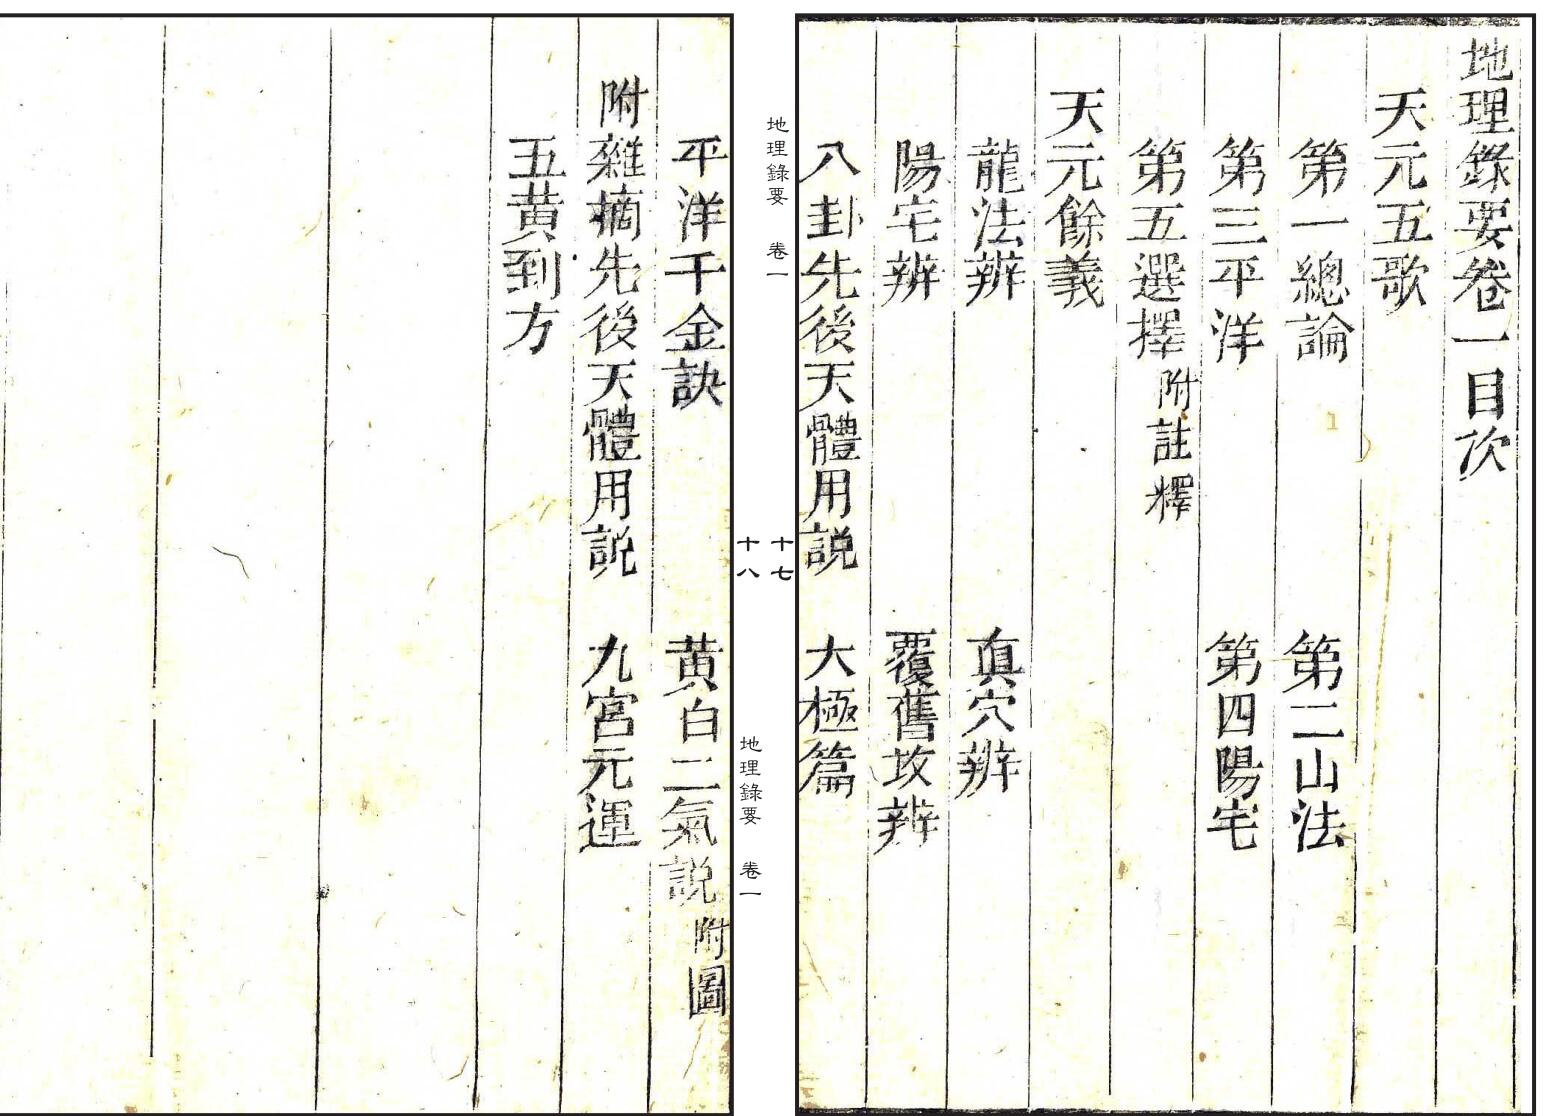 地理錄要卷一目次
天元五歌
第一總論　第二山法
第三平洋　第四陽宅
第五選擇附註釋
天元餘義
龍法辨　真穴辨
陽宅辨　覆舊攷辨
八卦先後天體用説　大極篇
地理錄要　卷一
十七
平洋千金訣　黃白二氣説附圖
附雜摘先後天體用説　九宮元運
五黃到方
地理錄要　卷一
十八